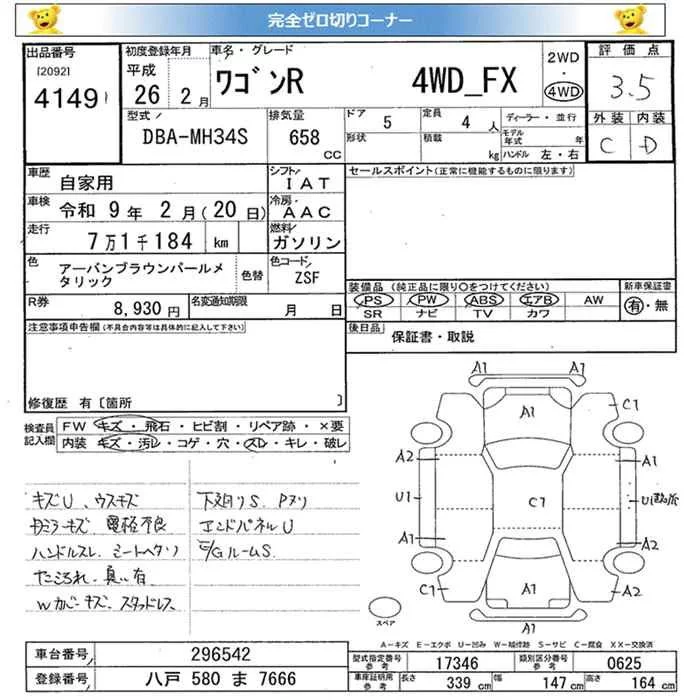 完全ゼロ切りコーナー
出品番号
[2092]
4149
初度登録年月
平成
26 2 月
車名・グレード
ワゴンR 4WD_FX
2WD
・
4WD
評価点
3.5
外装 内装
C D
型式
DBA-MH34S
排気量
658
cc
ドア
5
定員
4 人
形状
積載
kg
ディーラー・並行
モデル年式 年
ハンドル 左・右
車歴
自家用
シフト
IAT
車検
令和 9 年 2 月(20 日)
冷房
AAC
走行
7 万 1 千 184 km
燃料
ガソリン
色
アーバンブラウンパールメタリック
色替
色コード
ZSF
R券
8,930 円
名変通知期限
月 日
セールスポイント(正常に機能するものに限ります)
装備品(純正品に限り○をつけてください)
PS PW ABS エアB AW
SR ナビ TV カワ
新車保証書
有・無
後日品
保証書・取説
注意事項申告欄(不具合内容等は具体的に記入して下さい)
修復歴 有〔箇所 〕
検査員記入欄
FW キズ・飛石・ヒビ割・リペア跡・×要
内装 キズ・汚レ・コゲ・穴・スレ・キレ・破レ
キズU、ウスキズ
ハンドルスレ、シートヘタリ
Wカバーキズ、スタッドレス
下廻りS、Pヌリ
エンドパネルU
E/GルームS
A1
A1
A1
C1
A2
A1
U1
C1
U1
A1
A2
C1
A1
C1
A1
スペア
A-キズ E-エクボ U-凹み W-補修跡 S-サビ C-腐食 XX-交換済
車台番号
296542
登録番号
八戸 580 ま 7666
型式指定番号
参考
17346
類別区分番号
参考
0625
車庫証明用
参考
長さ
339 cm
幅
147 cm
高さ
164 cm